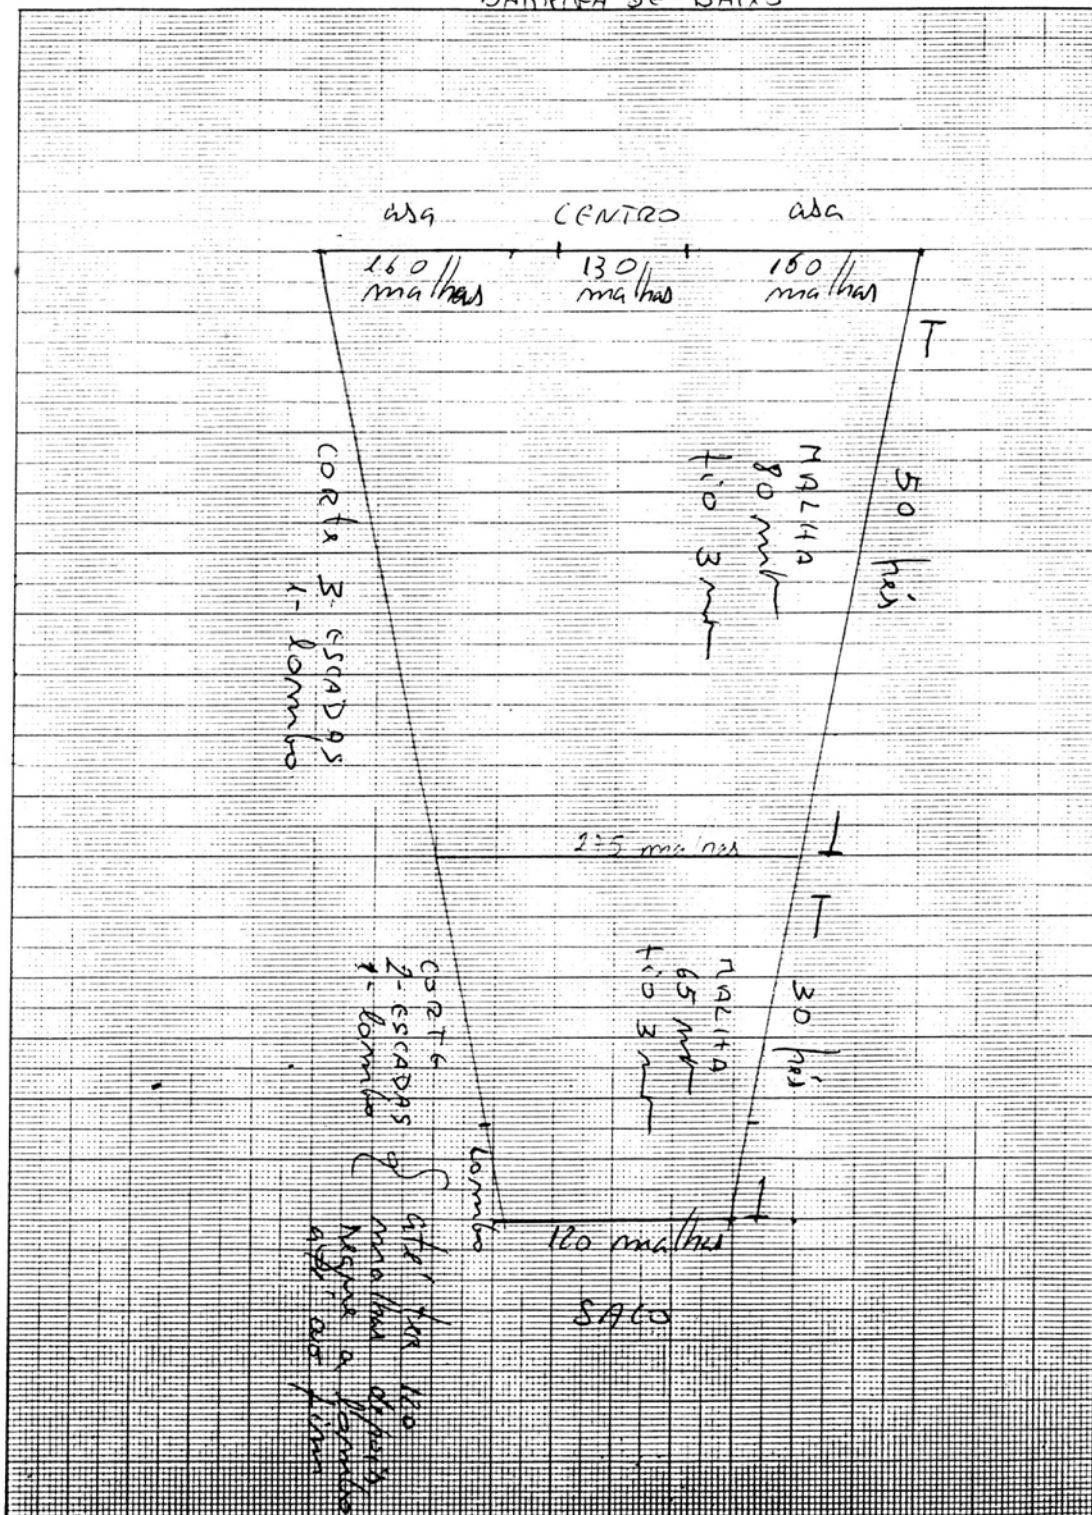 BARRIGA DE BAIXO
asa CENTRO asa
160 130 160
malhas malhas malhas
50 pés
MALHA
80 m/m
fio 3 m/m
CORTE 3- ESCADAS
1- lombo
275 malhas
30 pés
MALHA
65 m/m
fio 3 m/m
CORTE
2- ESCADAS
1- lombo
lombo
até ter 120
malhas depois
segue a lombo
até ao fim
120 malhas
SACO